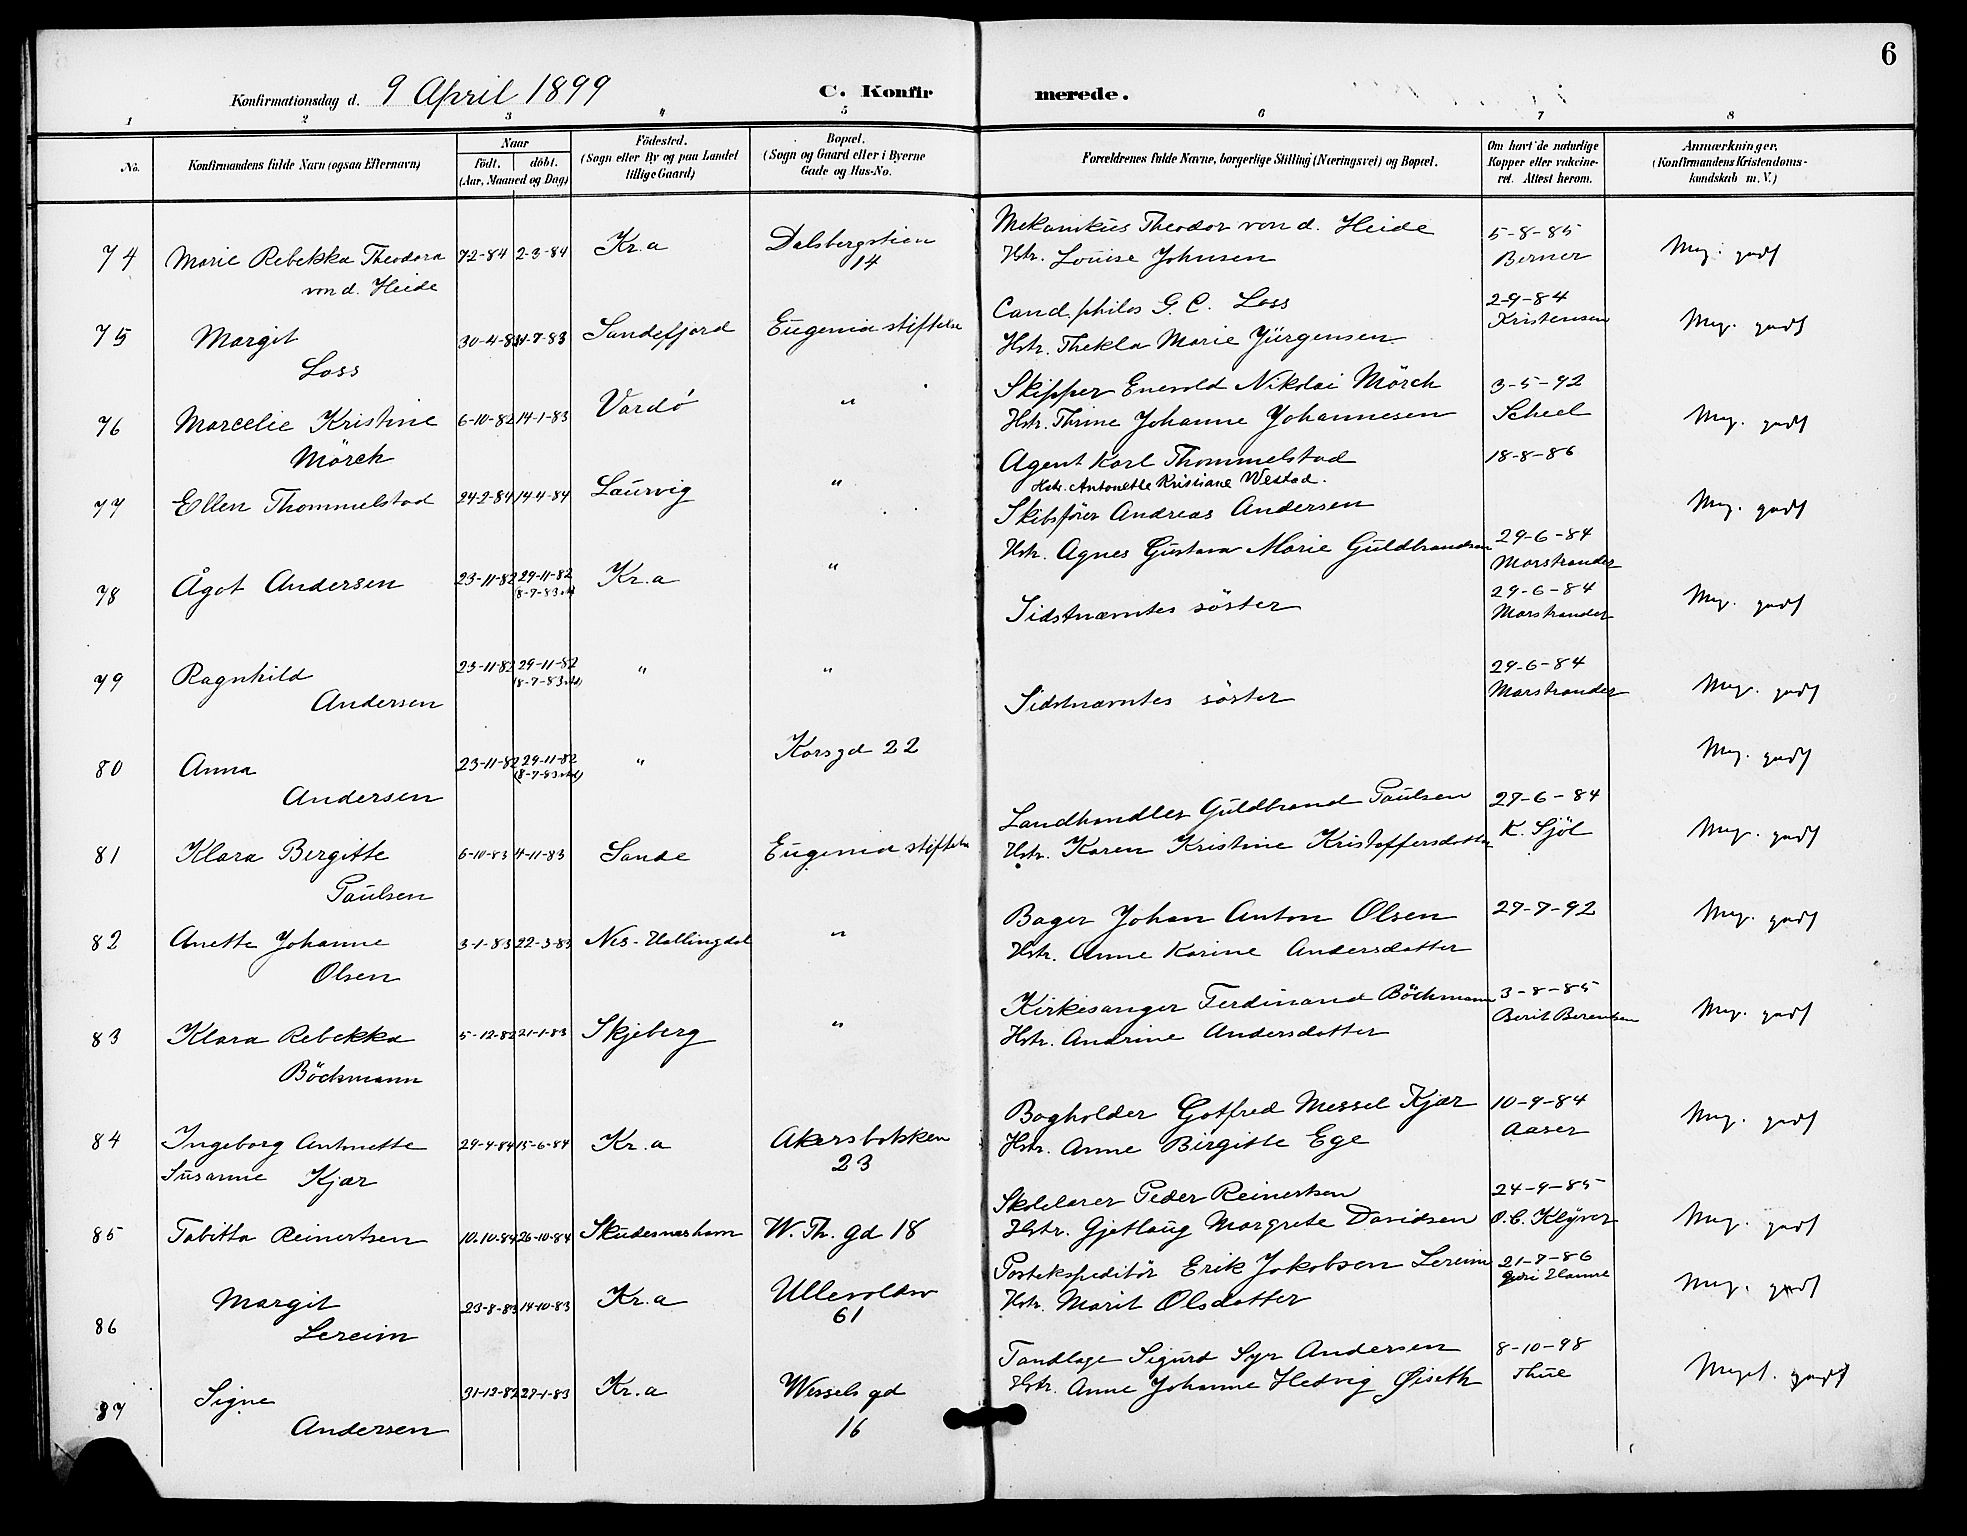 6
Konfirmationsdag d. 9 April 1899 C. Konfirmerede.
1 2 3 4 5 6 7 8
No.
Konfirmandens fulde Navn (ogsaa Efternavn)
Naar
födt. döbt.
(Aar, Maaned og Dag)
Födested.
(Sogn eller By og paa Landet
tillige Gaard)
Bopæl.
(Sogn og Gaard eller i Byerne
Gade og Hus-No.
Forældrenes fulde Navne, borgerlige Stilling (Næringsvei) og Bopæl.
Om havt de naturlige
Kopper eller vakcine-
ret. Attest herom.
Anmærkninger.
(Konfirmandens Kristendoms-
kundskab m. V.)
74 Marie Rebekka Theodora 7-2-84 2-3-84 Kr.a Dalsbergstien Mekanikus Theodor von d. Heide 5-8-85 Meg. godt
von d. Heide 14 Hstr. Louise Johnsen Berner
75 Margit 30-4-83 Sandefjord Eugenia stiftelse Cand. philos G. C. Loss 2-9-84 Meg. godt
Loss Hstr. Thekla Marie Jürgensen Kristensen
76 Marcelie Kristine 6-10-82 14-1-83 Vardö " Skipper Enevold Nikolai Mörch 3-5-92 Meg. godt
Mörch Hstr. Thrine Johanne Johannesen Scheel
77 Ellen Thommelstad 24-2-84 14-4-84 Laurvig " Agent Karl Thommelstad 18-8-86 Meg. godt
Hstr. Antonette Kristiane Westad.
78 Ågot Andersen 23-11-82 29-11-82 Kr.a " Skibsfører Andreas Andersen 29-6-84 Meg. godt
(8-7-83 Hstr. Agnes Gustava Marie Guldbrandsen Marstrander
79 Ragnhild 23-11-82 29-11-82 " " Sidstnævntes söster 29-6-84 Meg. godt
Andersen (8-7-83 Marstrander
80 Anna 23-11-82 29-11-82 " Korsgd 22 Sidstnævntes söster 29-6-84 Meg. godt
Andersen (8-7-83 Marstrander
81 Klara Bergitte 6-10-83 4-11-83 Sande Eugenia stiftelse Landhandler Guldbrand Paulsen 27-6-84 Meg. godt
Paulsen Hstr. Karen Kristine Kristoffersdatter K. Sjöl
82 Anette Johanne 3-1-83 22-3-83 Nes-Hallingdal " Bager Johan Anton Olsen 27-7-92 Meg. godt
Olsen Hstr. Anne Karine Andersdatter
83 Klara Rebekka 5-12-82 21-1-83 Skjeberg " Kirkesanger Ferdinand Böckmann 3-8-85 Meg. godt
Böckmann Hstr. Andrine Andersdatter Berit Berentsen
84 Ingeborg Antonette 29-4-84 15-6-84 Kr.a Akersbakken Bogholder Gotfred Messel Kjær 10-9-84 Meg. godt
Susanne Kjær 23 Hstr. Anne Birgitte Ege Aaser
85 Tabitta Reinertsen 10-10-84 26-10-84 Skudesneshavn W. Th. gd 18 Skolelærer Peder Reinertsen 24-9-85 Meg. godt
Hstr. Gjetlaug Margrete Davidsen O. C. Klÿver
86 Margit 23-8-83 14-10-83 Kr.a Ullevoldsv Postekspeditör Erik Jakobsen Lereim Meg. godt
Lereim 61 Hstr. Marit Olsdatter
87 Signe 31-12-82 27-1-83 Kr.a Wessels gd Tandlæge Sigurd Syr Andersen 8-10-98 Meget. godt
Andersen 16 Hstr. Anne Johanne Hedvig Øiseth Thue